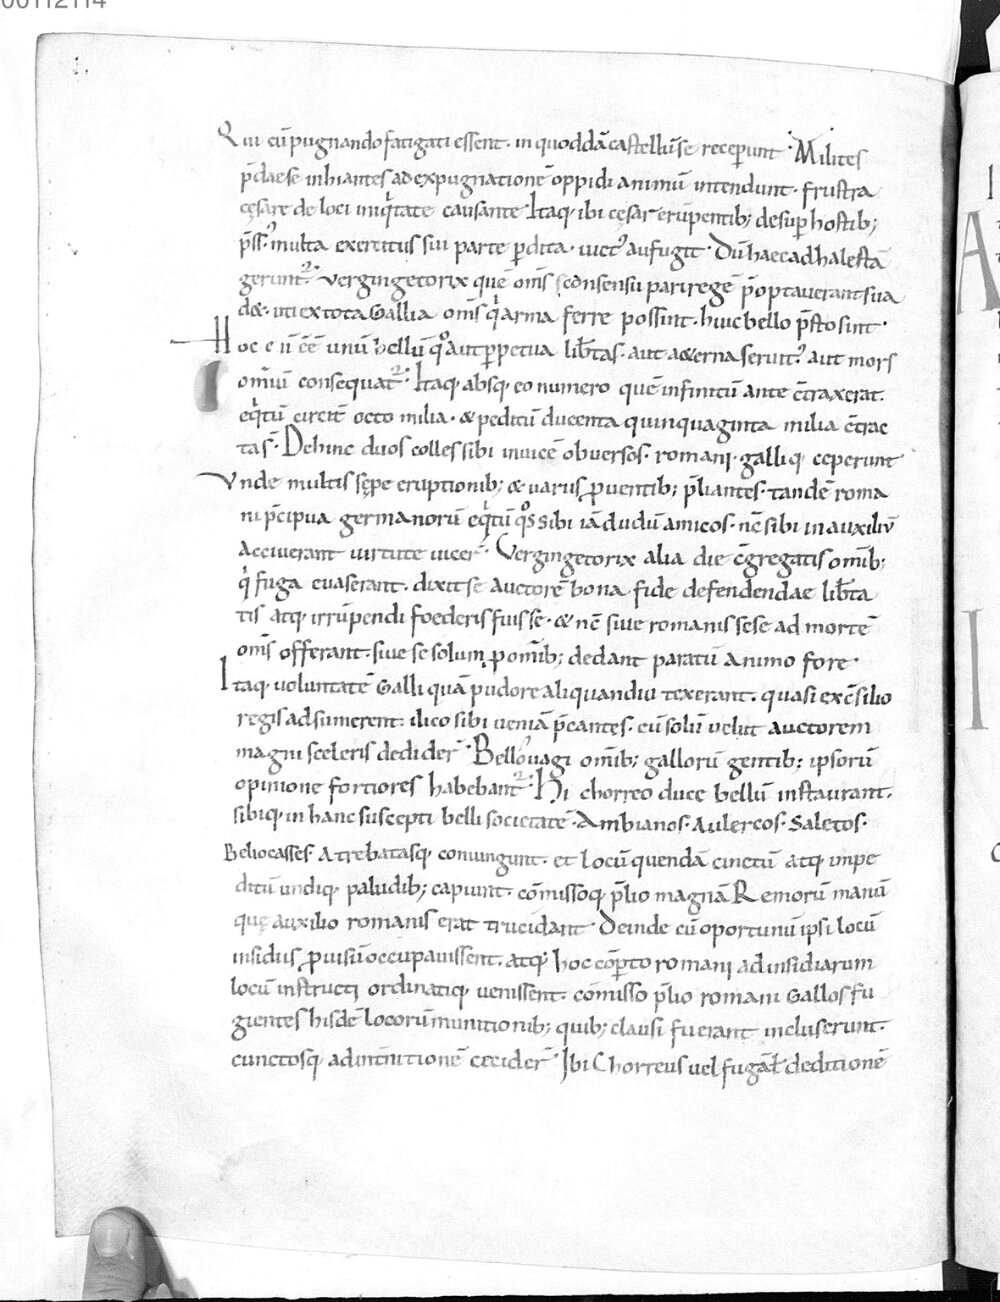 00112114
Qui cū pugnando fatigati essent· in quoddā castellū se recep̄unt· Milites
p̄dae se inhiantes ad expugnationē oppidi animū intendunt· frustra
cęsare de loci iniq̇tate causante· Itaq; ibi cęsar erūpentib; desup̄ hostib;
p̄ss᾽ multa exercitus sui parte p̄dita· uict᾽ aufugit· Dū haec ad halestā
gerunt᷑· Vergingetorix quē om̄s c̄onsensu pari regē p̄optauerant sua
d&· uti ex tota Gallia om̄s q̇ arma ferre possint· huic bello p̄sto sint·
Hoc ē n̄ ēē unū bellū q̊ aut p̄petua lib̄tas· aut a&erna seruit᾽ aut mors
omniū consequat᷑· Itaq; absq; eo numero quē infinitū ante c̄traxerat·
eq̇tū circit̄ octo milia· & peditū ducenta quinquaginta milia c̄trac
tas· Dehinc duos colles sibi inuicē obuersos· romani· galliq; ceperunt
Vnde multis sępe eruptionib; & uariis p̄uentib; p̄liantes· tandē roma
ni p̄cipua germanorū eq̇tū q̊s sibi iā dudū amicos· nc̄ sibi in auxiliū
acciuerant uirtute uicer̄· Vergingetorix alia die c̄gregatis omīb;
q̇ fuga euaserant· dixit se auctorē bona fide defendendae lib̄ta
tis atq; irrūpendi foederis fuisse· & nc̄ siue romanis sese ad mortē
om̄s offerant· siue se solum p̄ omīb; dedant paratū animo fore·
Itaq; uoluntatē Galli quā pudore aliquandiu texerant· quasi ex c̄silio
regis adsumerent· ilico sibi ueniā p̄cantes· eū solū uelut auctorem
magni sceleris dedider̄· Bellouagi omīb; gallorū gentib; ipsorū
opinione fortiores habebant᷑· Hi chorreo duce bellū instaurant·
sibiq; in hanc suscepti belli societatē· Ambianos· Aulercos· Saletos·
Beliocasses· Atrebatasq; coniungunt· et locū quendā cinctū atq; impe
ditū undiq; paludib; capiunt· cōmissoq; p̄lio magnā Remorū manū
quę auxilio romanis erat trucidant· Deinde cū oportunū ipsi locū
insidiis p̄uisū occupauissent· atq; hoc cōp̄to romani ad insidiarum
locū instructi ordinatiq; uenissent· cōmisso p̄lio romani Gallos fu
gientes hisdē locorū munitionib; quib; clausi fuerant incluserunt·
cunctosq; ad int̄nitionē cecider̄· Ibi Chorreus uel fugā ł deditionē